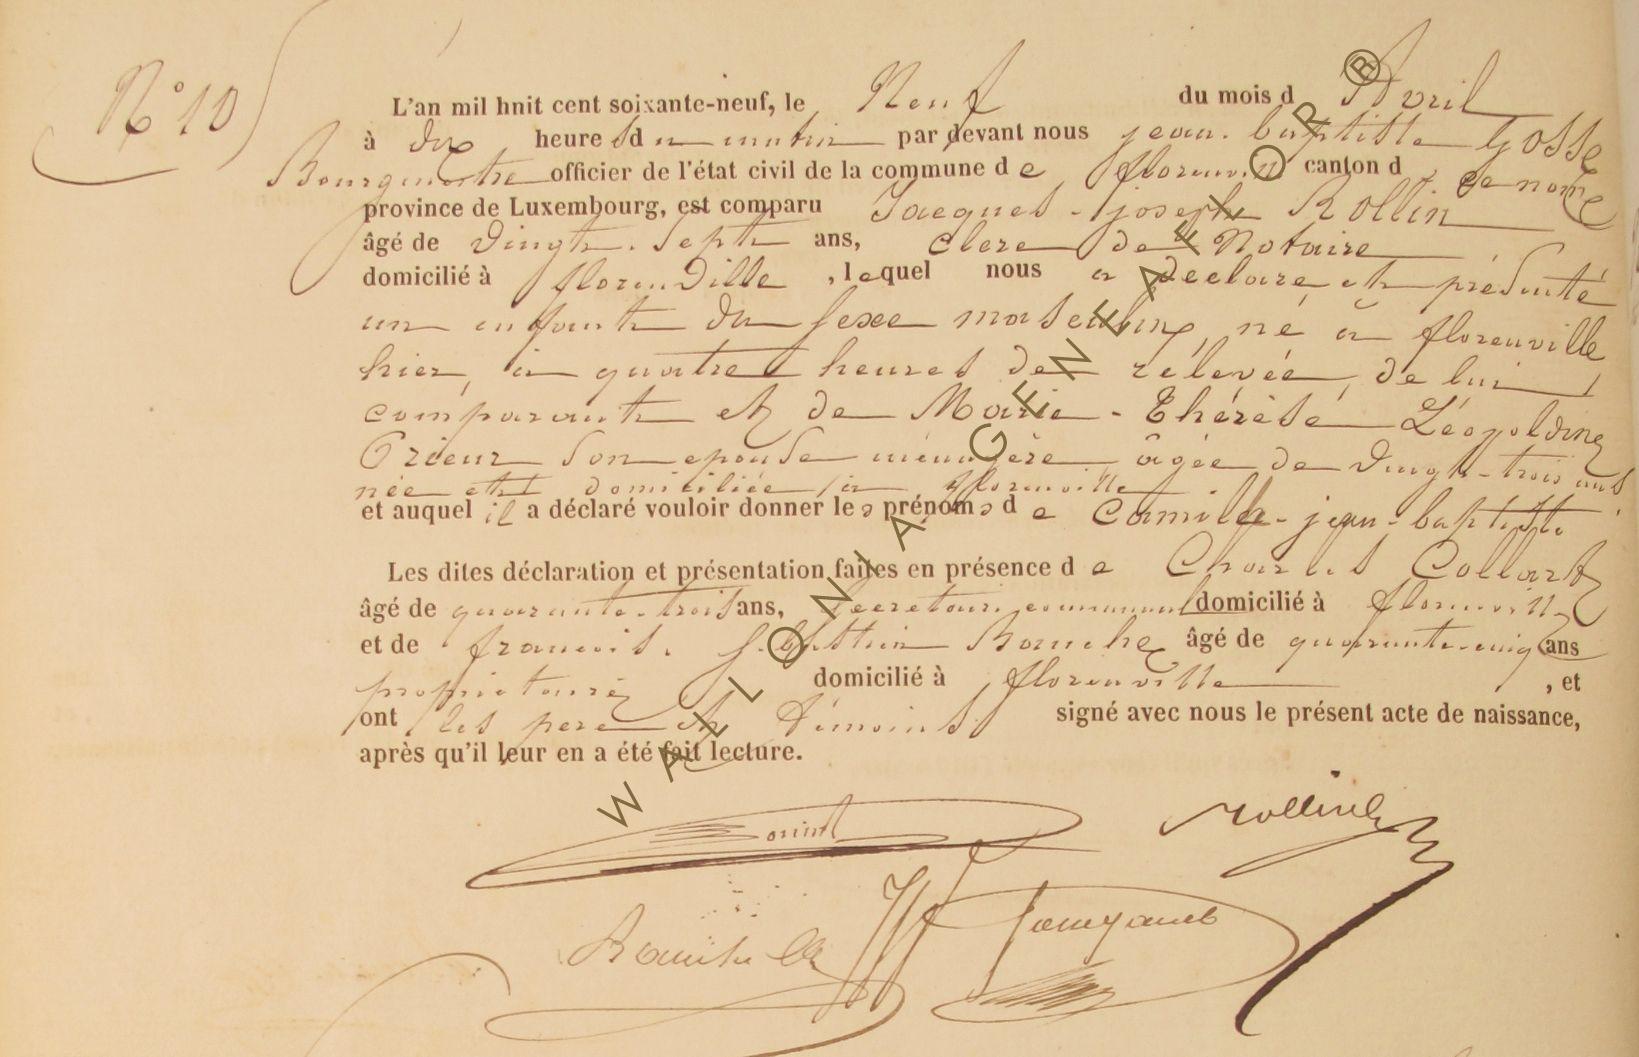 N° 10
L'an mil hnit cent soixante-neuf, le Neuf du mois d'Avril
à dix heures du matin par devant nous jean-baptiste Gosse
Bourgmestre officier de l'état civil de la commune de florenville canton d
province de Luxembourg, est comparu Jacques-joseph Rollin
âgé de vingt-sept ans, clerc de Notaire
domicilié à florenville, lequel nous a declaré et présenté
un enfant du sexe masculin, né à florenville
hier, à quatre heures de rélevée, de lui
comparant et de Marie-Thérèse Léopoldine
Prieur son epouse ménagère âgée de vingt-trois ans
née et domiciliée à florenville
et auquel il a déclaré vouloir donner les prénoms de Camille-jean-baptiste
Les dites déclaration et présentation faites en présence de Charles Collart
âgé de quarante-trois ans, secretaire communal domicilié à florenville
et de francois Banche âgé de quarante-cinq ans
proprietaire domicilié à florenville, et
ont les pere et témoins signé avec nous le présent acte de naissance,
après qu'il leur en a été fait lecture.
Rollin
WALLONIA GENEAFELIOR ®